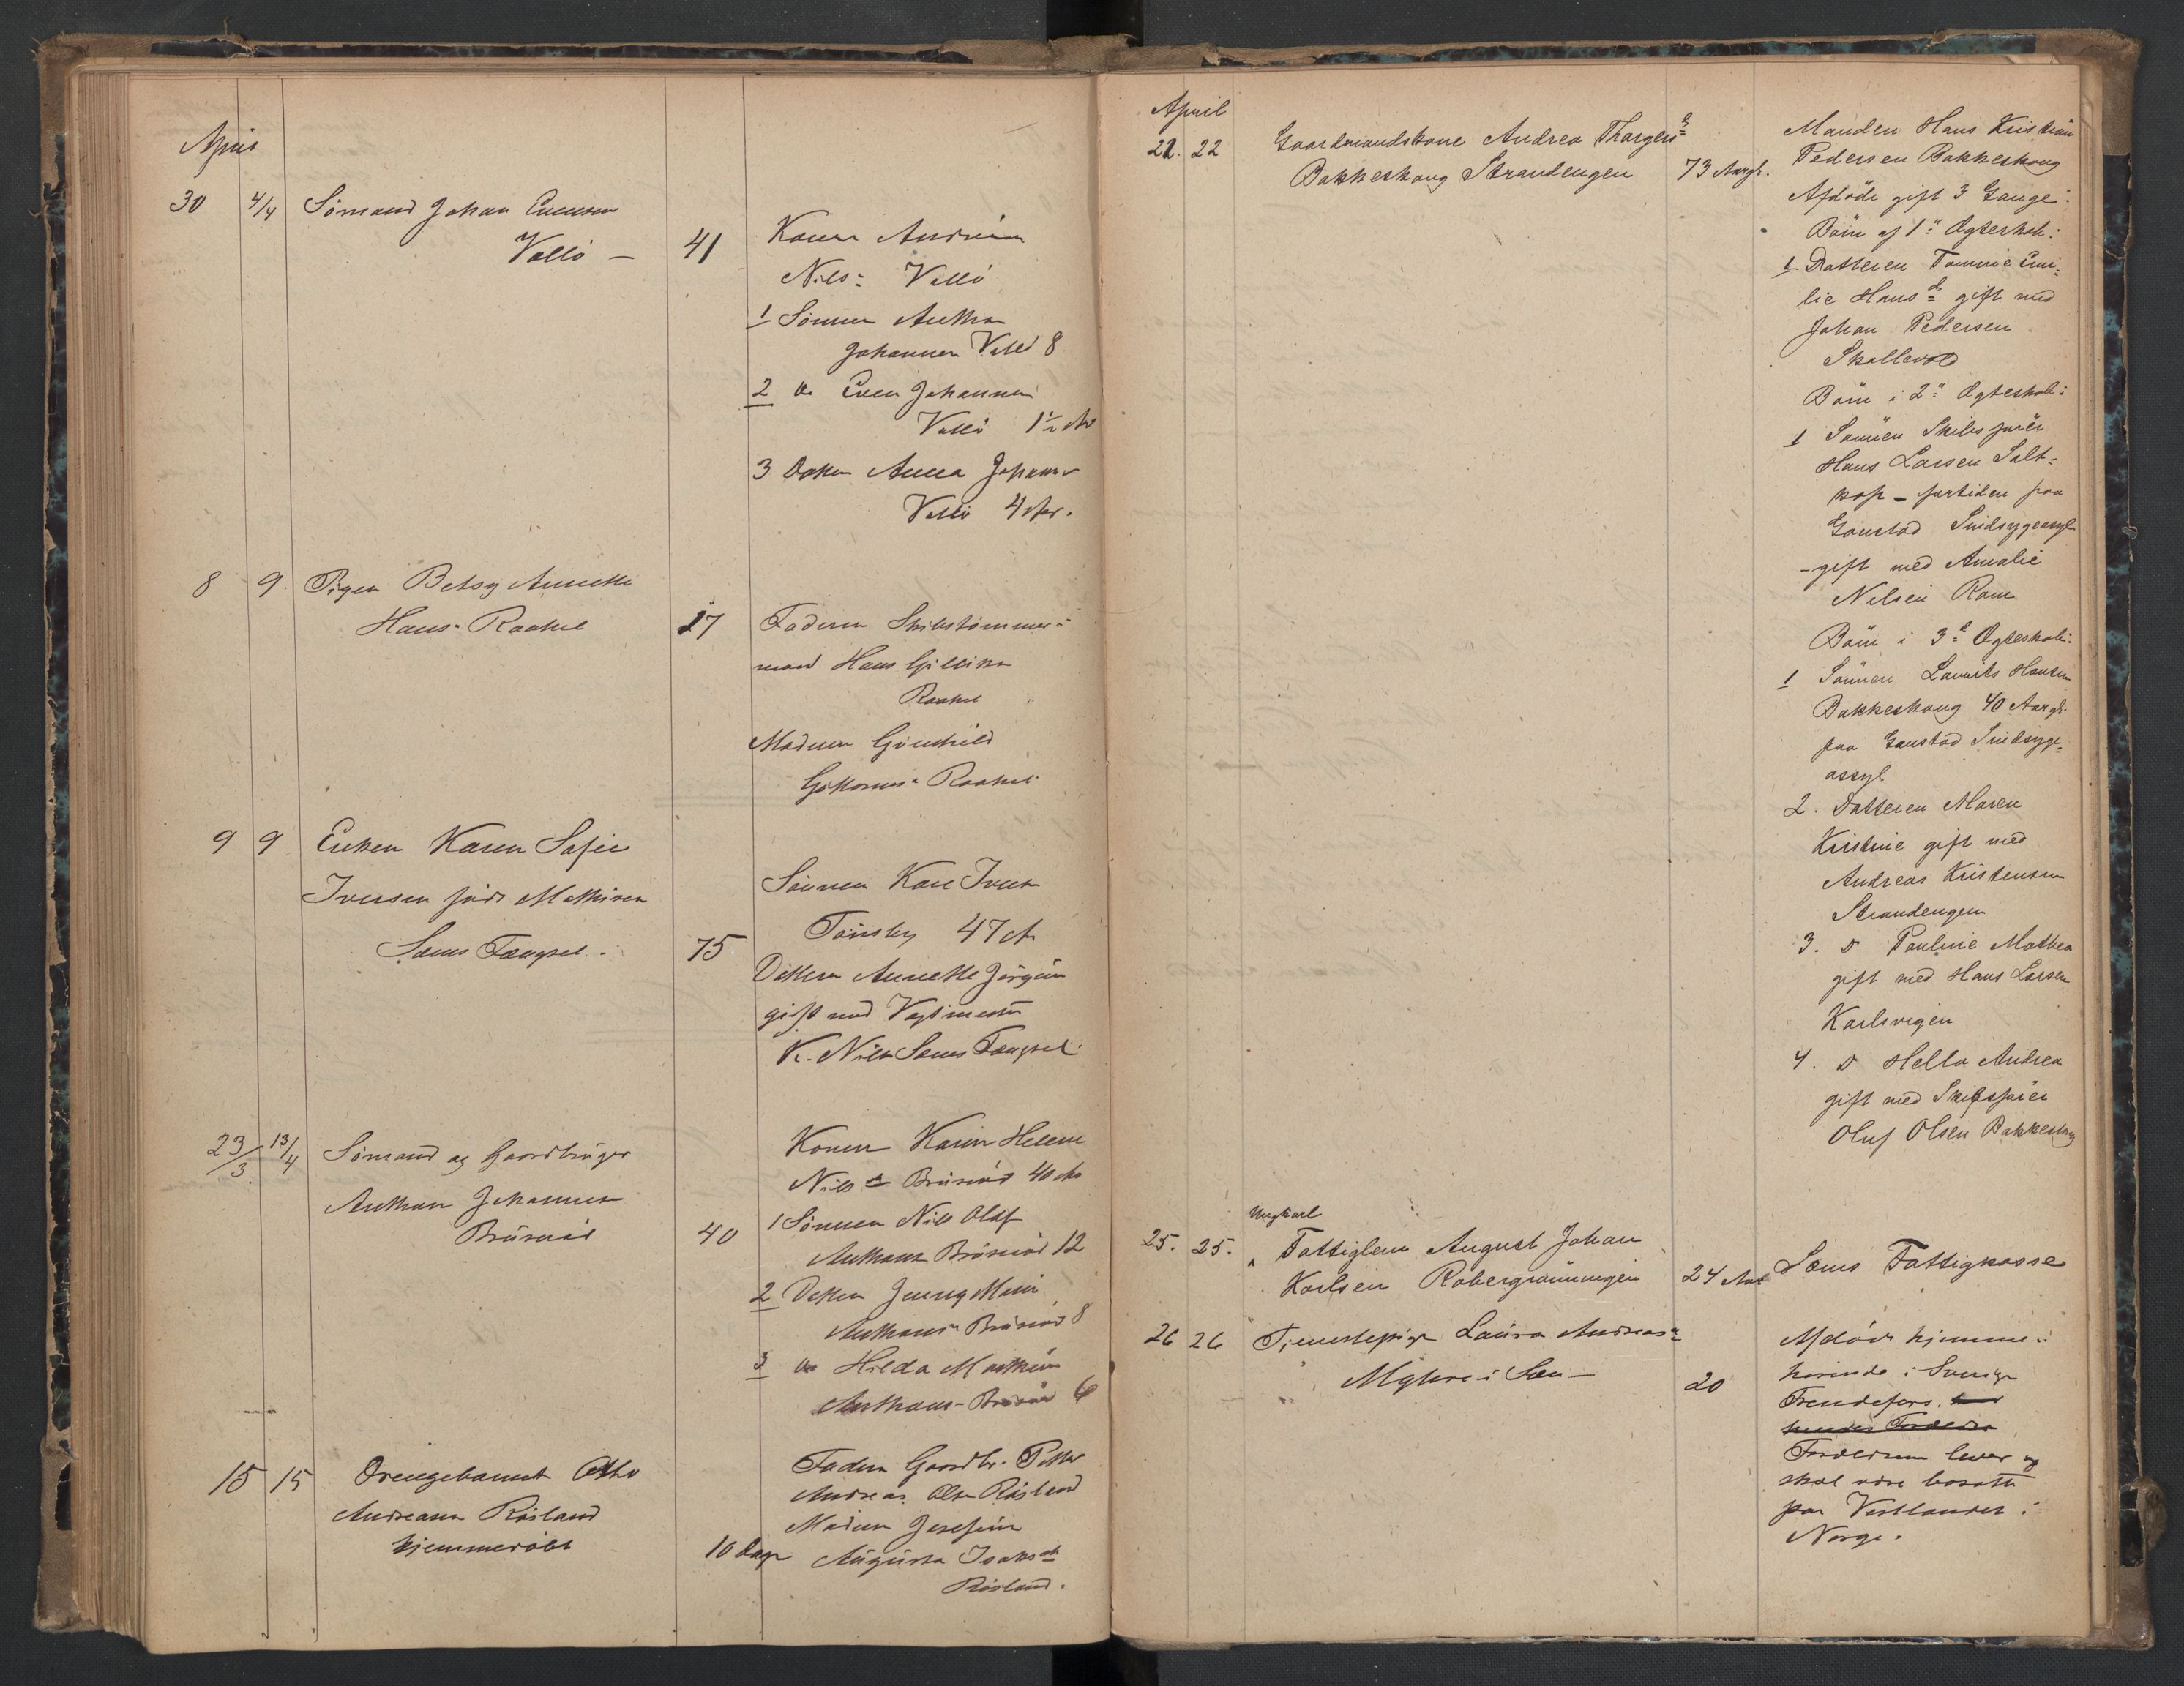 April
30 4/4 Sömand Johan Evensen
Vallö — 41
Konen Andrine
Nils= Vallö
1 Sönnen Anthon
Johannsen Vallö 8
2 do Even Johannsen
Vallö 1½ Ar
3 Datter Anna Johanne
Vallö 4 Ar.
8 9 Pigen Betsy Annette
Hans= Raakel 17
Faderen Skibstömmer=
mand Hans
Raakel
Moderen Gunhild
Raakel
9 9 Enken Karen Sofie
Iversen föd Mathisen
Sems Fængsel. 75
Sönnen Karl Iversen
Tönsberg 47 A
Datteren Annette Jörgine
gift med Vagtmester
K. Nilsen Sems Fængsel
23/3 13/4 Sömand og Gaardbruger
Anthon Johannesen
Bruserød 40
Konen Karen Helene
Nils d Bruserød 40 Ar
1 Sönnen Nils Olaf
Anthonsen Bruserød 12
2 Datter Jenny Marie
Anthons= Bruserød 8
3 do Hilda Mathea
Anthons= Bruserød 6
15 15 Drengebarnet Otto
Andreasen Räsland
hjemmedöbt 10 Dage
Faderen Gaardbr. Petter
Andreas Olsen Räsland
Moderen Josefine
Augusta Isaksd
Räsland.
April
21. 22 Gaardmandskone Andrea Thorgersd
Bakkeskaug Strandengen 73 Aargl.
Manden Hans Kristian
Pedersen Bakkeskaug
Afdöde gift 3 Gange:
Börn af 1ste Ægteskab:
1. Datteren Tomine Emi=
lie Hansd gift med
Johan Pedersen
Skallevold
Börn i 2det Ægteskab:
1 Sönnen Skibsförer
Hans Larsen Salt=
kop - fortiden paa
Gaustad Sindsygeasyl
- gift med Amalie
Nelsen Ram
Börn i 3die Ægteskab:
1 Sönnen Lauritz Hansen
Bakkeskaug 40 Aargl.
paa Gaustad Sindsyge=
assyl
2. Datteren Maren
Kristine gift med
Andreas Kristensen
Strandengen
3. D Pauline Mathea
gift med Hans Larsen
Karlsvigen
4. D Hella Andrea
gift med Skibsförer
Oluf Olsen Bakkeskaug
Ungkarl
25. 25. Fattiglem August Johan
Karlsen Robergrönningen 24 Aar
Sems Fattigkasse
26 26 Tjenestepige Laura Andreasd
i Sem — 20
Afdöde hjemme=
hörende i Sverige
Frendefors.
hendes Forældre
Forældrene lever og
skal være bosatte
paa Vestlandet i
Norge.